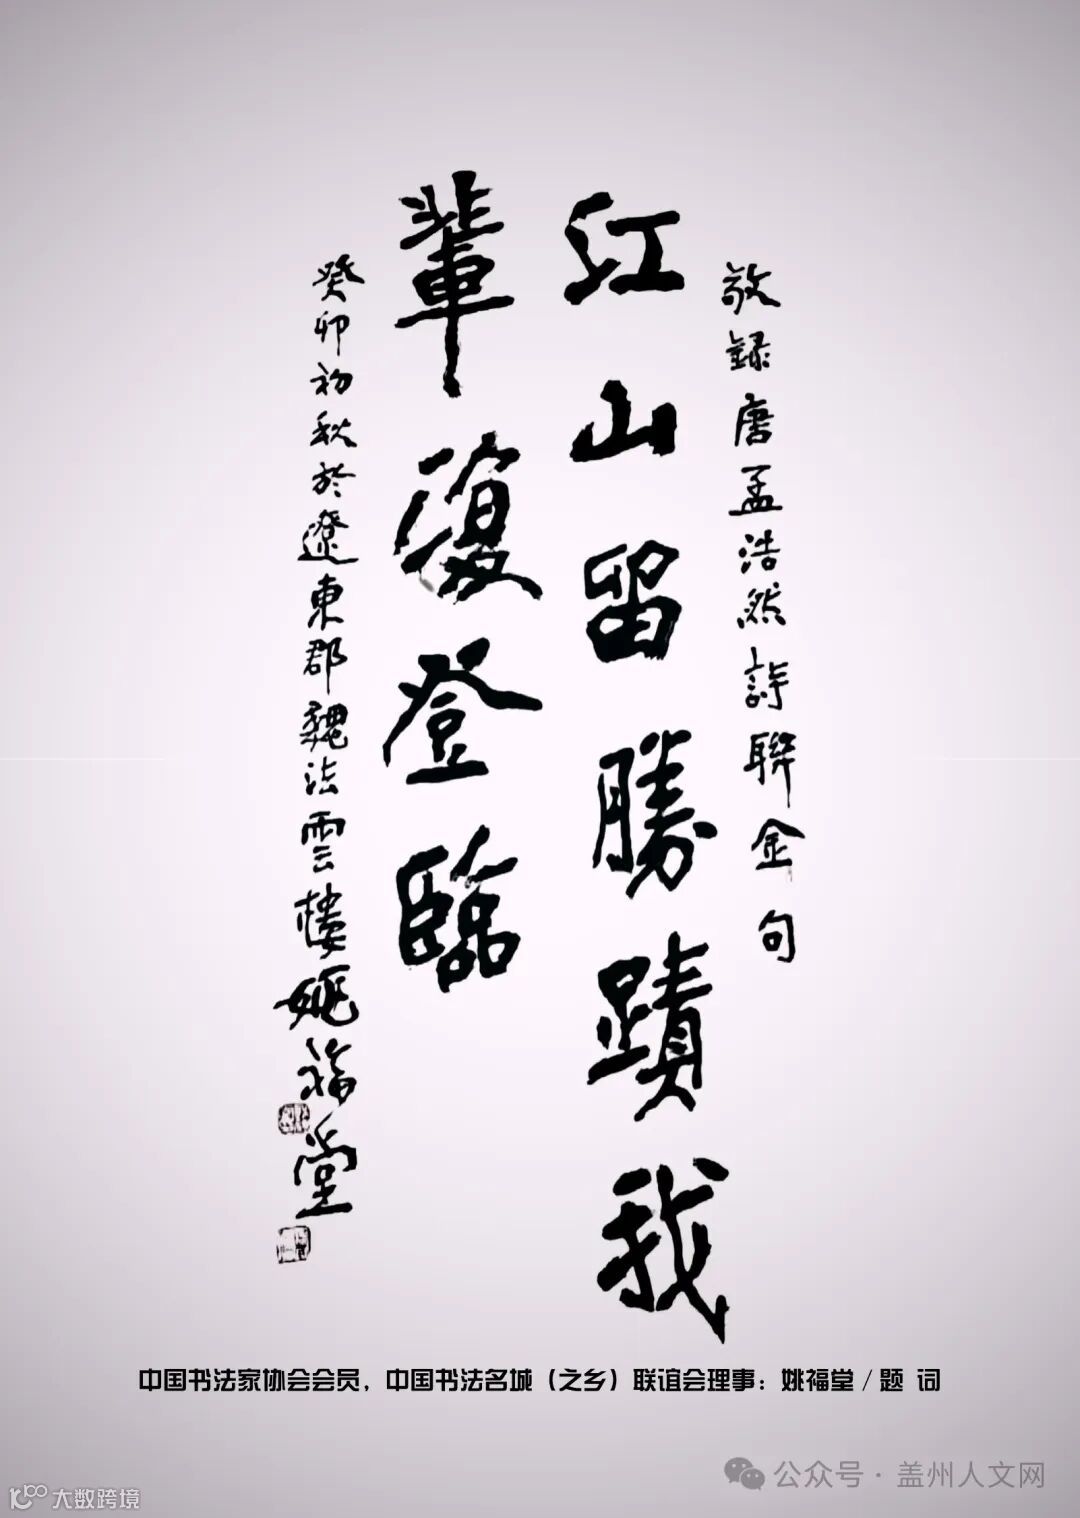 敬録唐孟浩然詩聯金句
江山留勝蹟我
輩復登臨
癸卯初秋於遼東郡魏法雲樓姚福堂
中国书法家协会会员，中国书法名城（之乡）联谊会理事：姚福堂／题 词
公众号·盖州人文网
大数跨境